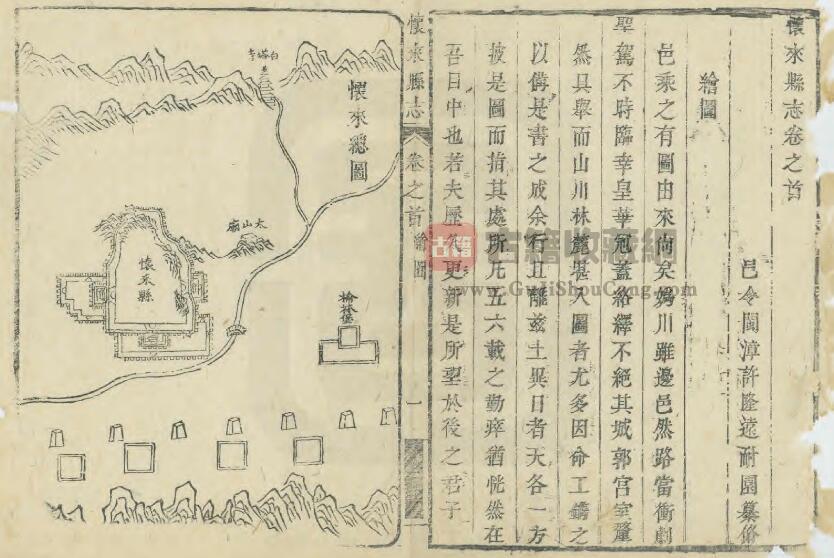 懷來縣志卷之首
邑令閩漳許隆遠耐園纂脩
繪圖
邑乘之有圖由來尚矣媯川雖邊邑然路當衝劇
聖駕不時臨幸皇華冠蓋絡繹不絕其城郭宮室釐
然具舉而山川林麓堪入圖者尤多因命工鐫之
以備是書之成余行且離兹土異日者天各一方
披是圖而指其處所凡五六載之勤瘁猶恍然在
吾目中也若夫歷久更新是所望於後之君子
懷來縣志
卷之首 繪圖
一
懷來總圖
白塔寺
太山廟
懷來縣
榆林堡
古籍
古籍收藏網
www.GujiShouCang.com